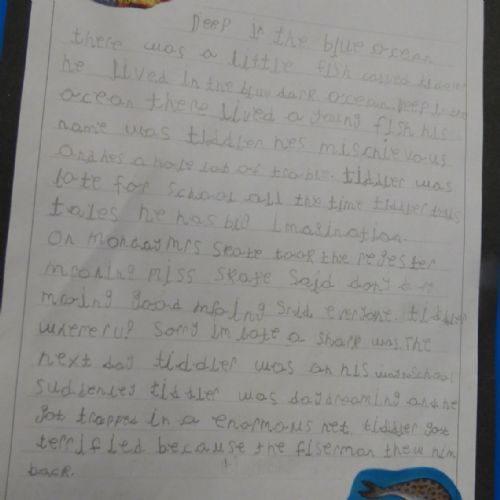 Deep in the blue ocean
there was a little fish called tiddler
he lived in the blue dark ocean Deep in the
ocean there lived a young fish his
name was tiddler hes mischievous
and hes a hole lot of trable. tiddler was
late for school all the time tiddler tells
tales he has big imagination.
On monday mrs skate took the regester
morning miss skate said
moring good moing said everyone. tiddler
where ru? Sorry im late a shark was. The
next day tiddler was on his way school
suddenley tiddler was daydreaming and he
got trapped in a enormous net. tiddler got
terrified because the fiserman thew him
back.